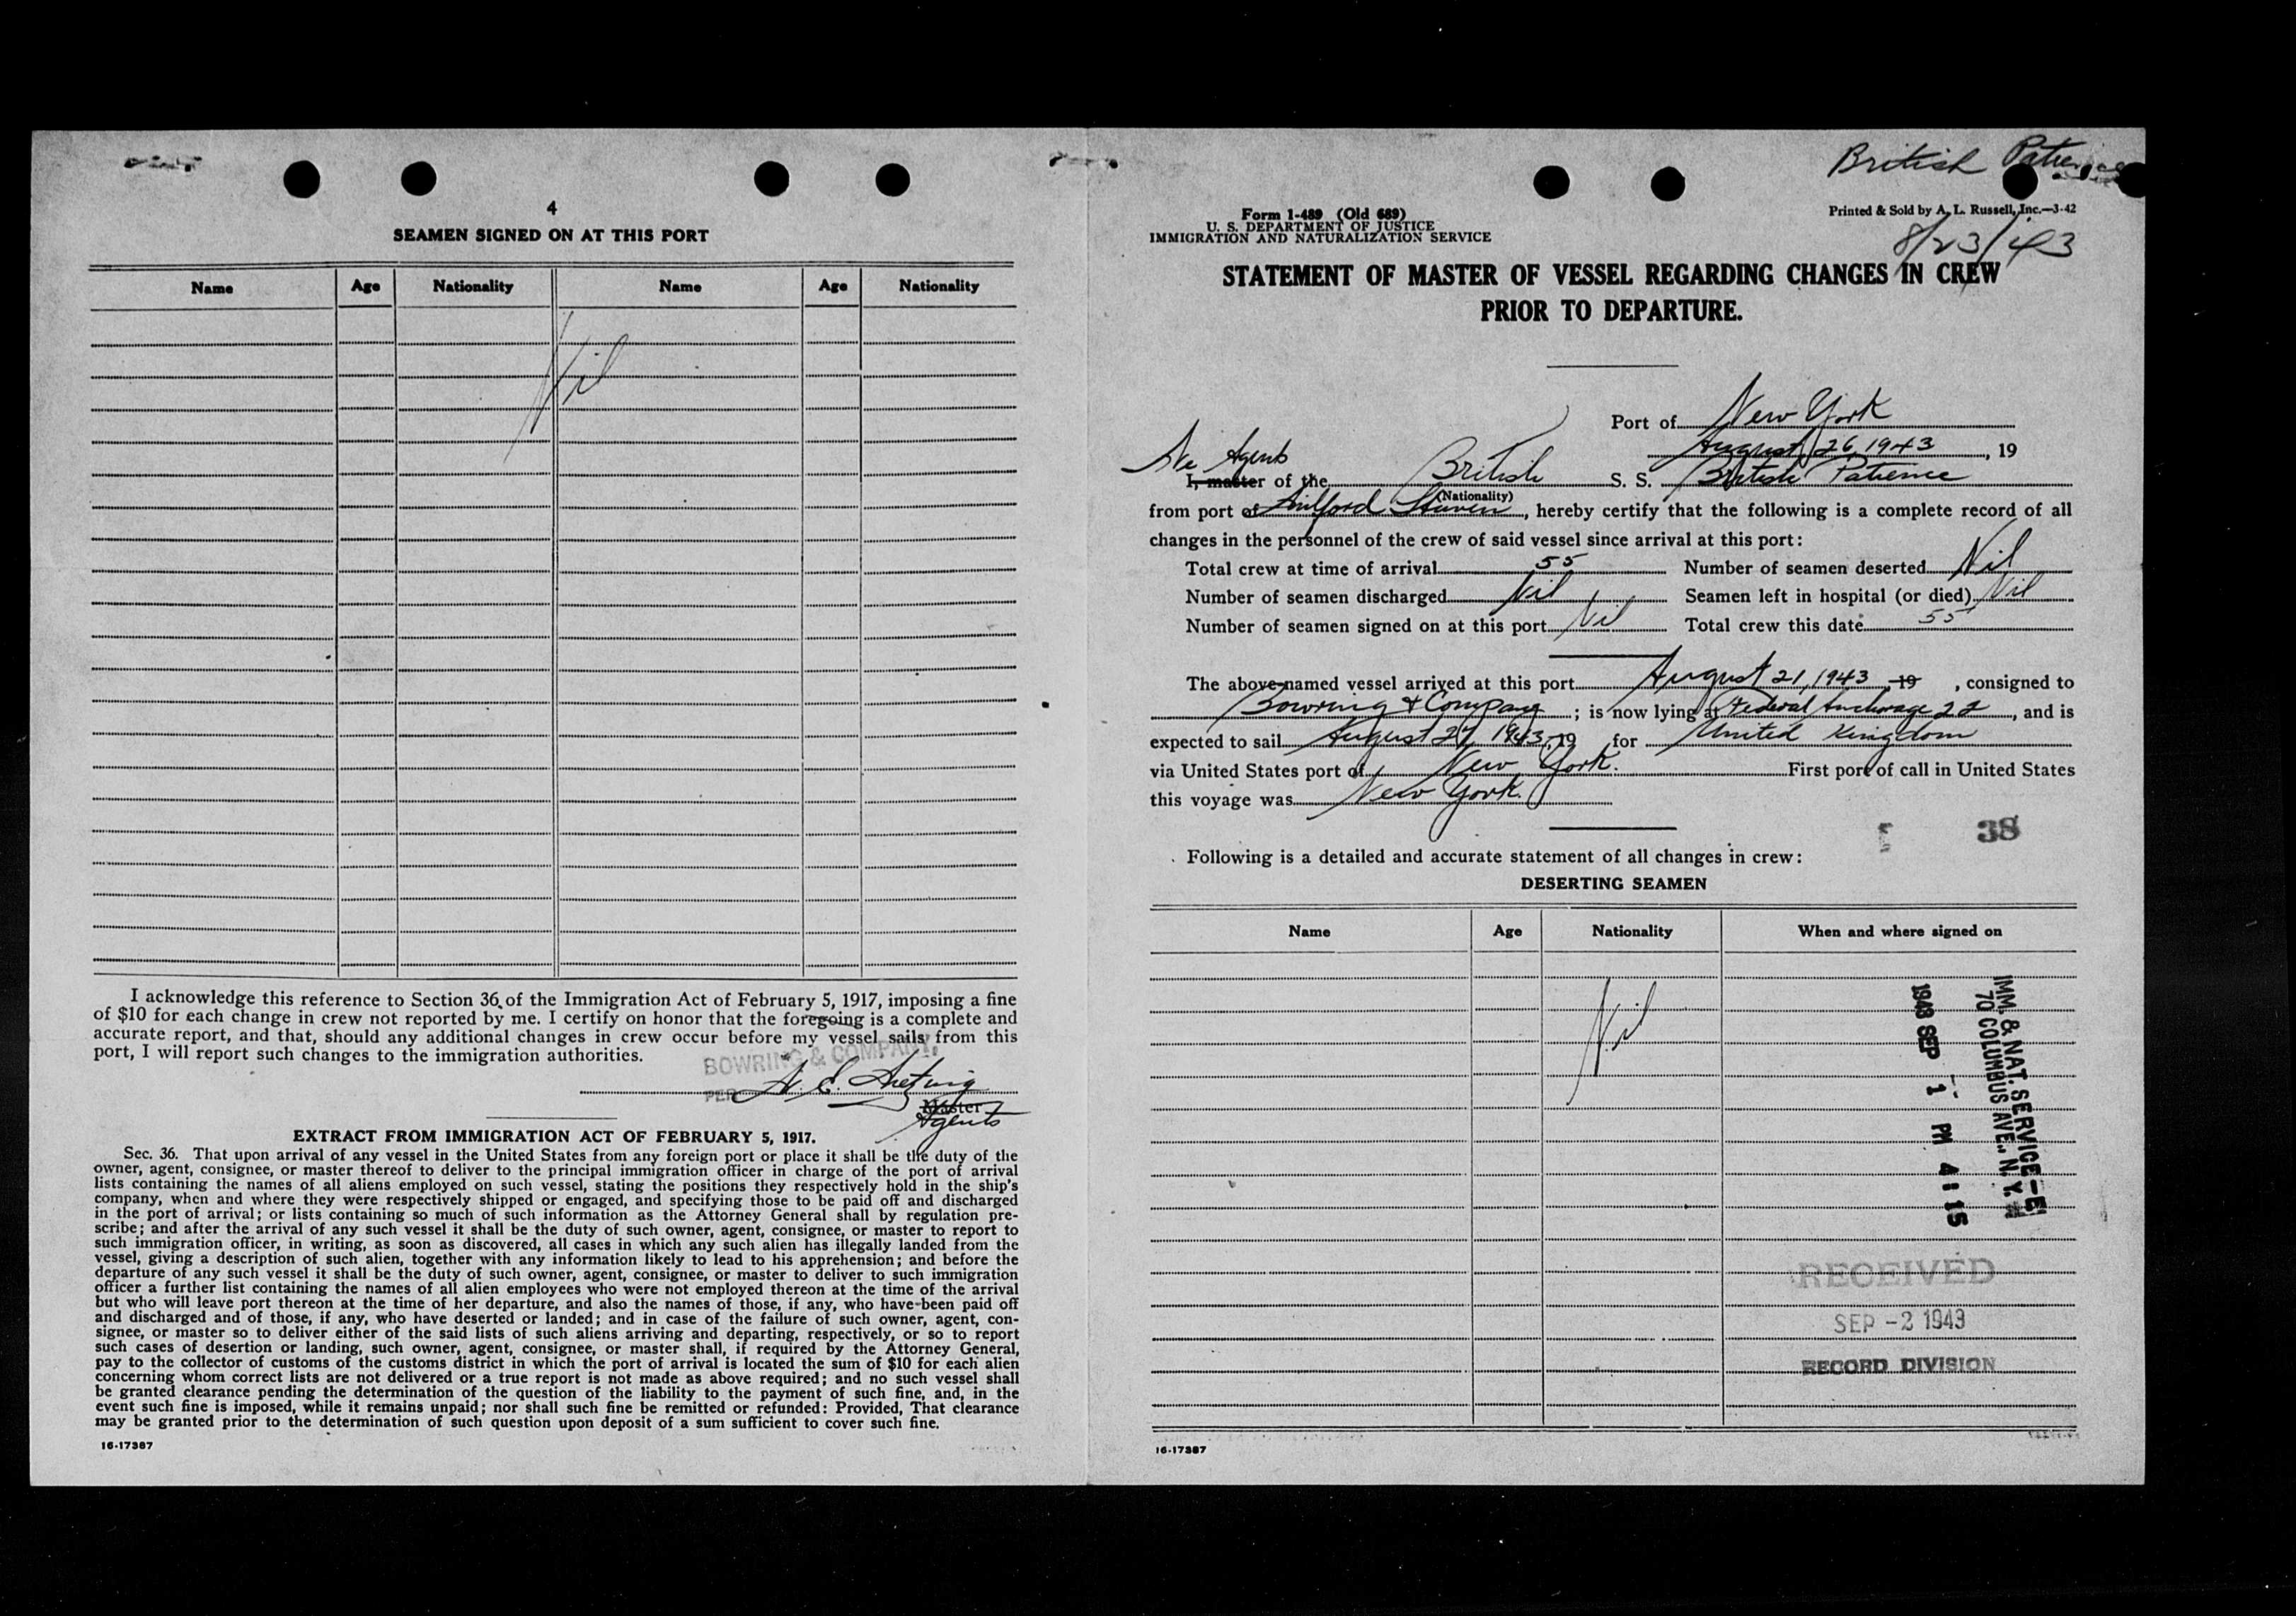 4
SEAMEN SIGNED ON AT THIS PORT
Name Age Nationality Name Age Nationality
Nil
I acknowledge this reference to Section 36 of the Immigration Act of February 5, 1917, imposing a fine
of $10 for each change in crew not reported by me. I certify on honor that the foregoing is a complete and
accurate report, and that, should any additional changes in crew occur before my vessel sails from this
port, I will report such changes to the immigration authorities.
BOWRING & COMPANY,
PER
Master
Agents
EXTRACT FROM IMMIGRATION ACT OF FEBRUARY 5, 1917.
Sec. 36. That upon arrival of any vessel in the United States from any foreign port or place it shall be the duty of the
owner, agent, consignee, or master thereof to deliver to the principal immigration officer in charge of the port of arrival
lists containing the names of all aliens employed on such vessel, stating the positions they respectively hold in the ship's
company, when and where they were respectively shipped or engaged, and specifying those to be paid off and discharged
in the port of arrival; or lists containing so much of such information as the Attorney General shall by regulation pre-
scribe; and after the arrival of any such vessel it shall be the duty of such owner, agent, consignee, or master to report to
such immigration officer, in writing, as soon as discovered, all cases in which any such alien has illegally landed from the
vessel, giving a description of such alien, together with any information likely to lead to his apprehension; and before the
departure of any such vessel it shall be the duty of such owner, agent, consignee, or master to deliver to such immigration
officer a further list containing the names of all alien employees who were not employed thereon at the time of the arrival
but who will leave port thereon at the time of her departure, and also the names of those, if any, who have been paid off
and discharged and of those, if any, who have deserted or landed; and in case of the failure of such owner, agent, con-
signee, or master so to deliver either of the said lists of such aliens arriving and departing, respectively, or so to report
such cases of desertion or landing, such owner, agent, consignee, or master shall, if required by the Attorney General,
pay to the collector of customs of the customs district in which the port of arrival is located the sum of $10 for each alien
concerning whom correct lists are not delivered or a true report is not made as above required; and no such vessel shall
be granted clearance pending the determination of the question of the liability to the payment of such fine, and, in the
event such fine is imposed, while it remains unpaid; nor shall such fine be remitted or refunded: Provided, That clearance
may be granted prior to the determination of such question upon deposit of a sum sufficient to cover such fine.
16-17387
British Patience
Form 1-489 (Old 689)
U. S. DEPARTMENT OF JUSTICE
IMMIGRATION AND NATURALIZATION SERVICE
Printed & Sold by A. L. Russell, Inc.—3-42
8/23/43
STATEMENT OF MASTER OF VESSEL REGARDING CHANGES IN CREW
PRIOR TO DEPARTURE.
Port of New York
August 26, 1943, 19
We Agents
I, master of the British S. S. British Patience
(Nationality)
from port of Milford Haven, hereby certify that the following is a complete record of all
changes in the personnel of the crew of said vessel since arrival at this port:
Total crew at time of arrival 55 Number of seamen deserted Nil
Number of seamen discharged Nil Seamen left in hospital (or died) Nil
Number of seamen signed on at this port Nil Total crew this date 55
The above-named vessel arrived at this port August 21, 1943, 19 , consigned to
Bowring & Company ; is now lying at Federal Anchorage 22, and is
expected to sail August 27, 1943, 19 for United Kingdom
via United States port of New York. First port of call in United States
this voyage was New York.
38
Following is a detailed and accurate statement of all changes in crew:
DESERTING SEAMEN
Name Age Nationality When and where signed on
Nil
IMM. & NAT. SERVICE-E
70 COLUMBUS AVE., N. Y.
1943 SEP 1 PM 4:15
RECEIVED
SEP -2 1943
RECORD DIVISION
16-17387